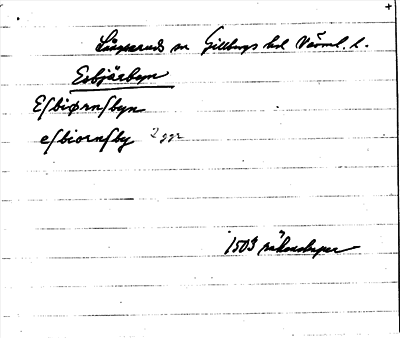 +
Långseruds sn Gillbergs hd Värml. l.
Esbjörbyn
Eſbiørnſbyn
eſbiornſby 2 ggr
1503 räkenskaper